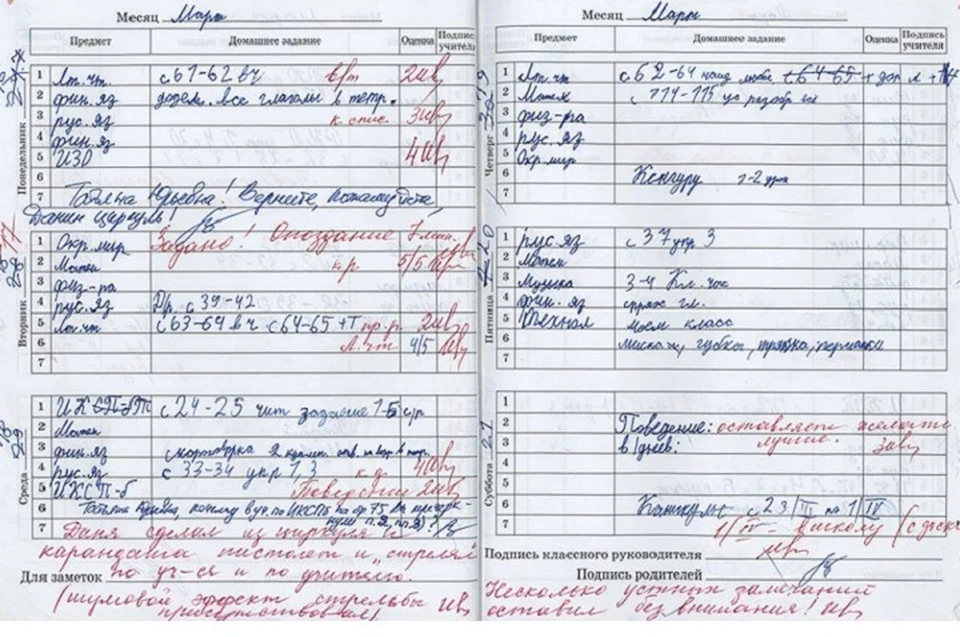 Месяц Март
Предмет Домашнее задание Оценка Подпись учителя
Понедельник
1 Лит.чт с 61-62 вч в/т 2
2 фин.яз додел. все глаголы в тетр.
3 рус.яз к спис. 3
4 фин.яз
5 ИЗО 4
6
7 Татьяна Юрьевна! Верните, пожалуйста,
Данин циркуль!
Вторник
1 Окр.мир Задано! Опоздание 7 мин.
2 Матем к.р. 5/5
3 физ-ра
4 рус.яз Д/р. с 39-42
5 Лит.чт с 63-64 вч с 64-65 +Т пр.р 2
6 Л.чт. 4/5
7
Среда 29
1 с 24-25 чит задание 1-5 с/р
2 Матем
3 фин.яз скороговорка 2
4 рус.яз с 33-34 упр 1,3 к.д. 4
5 ИКСП-б Поведение 2
6 Татьяна Юрьевна, почему в уч. по ИКСПб на стр 75
7 Даня сделал из циркуля и
карандаша пистолет и стрелял
Для заметок по уч-ся и по учителю.
(шумовой эффект стрельбы
присутствовал)
Месяц Март
Предмет Домашнее задание Оценка Подпись учителя
Четверг
1 Лит.чт с 62-64 с 64-65
2 Матем с 114-115 разобр
3 физ-ра
4 рус.яз
5 Окр.мир
6 Кенгуру 1-2 урок
7
Пятница
1 рус.яз с 37 упр 3
2 Матем
3 Музыка 3-4 Кл. час
4 фин.яз спряж гл.
5 Технол моем класс
6 миска, губка, тряпка, перчатки
7
Суббота 21
1
2 Поведение: оставляет желать
3 в/днев: лучшего. 3
4
5
6 Каникулы с 23/III по 1/IV
7 1/IV - в школу
Подпись классного руководителя
Подпись родителей
Несколько устных замечаний
оставил без внимания!